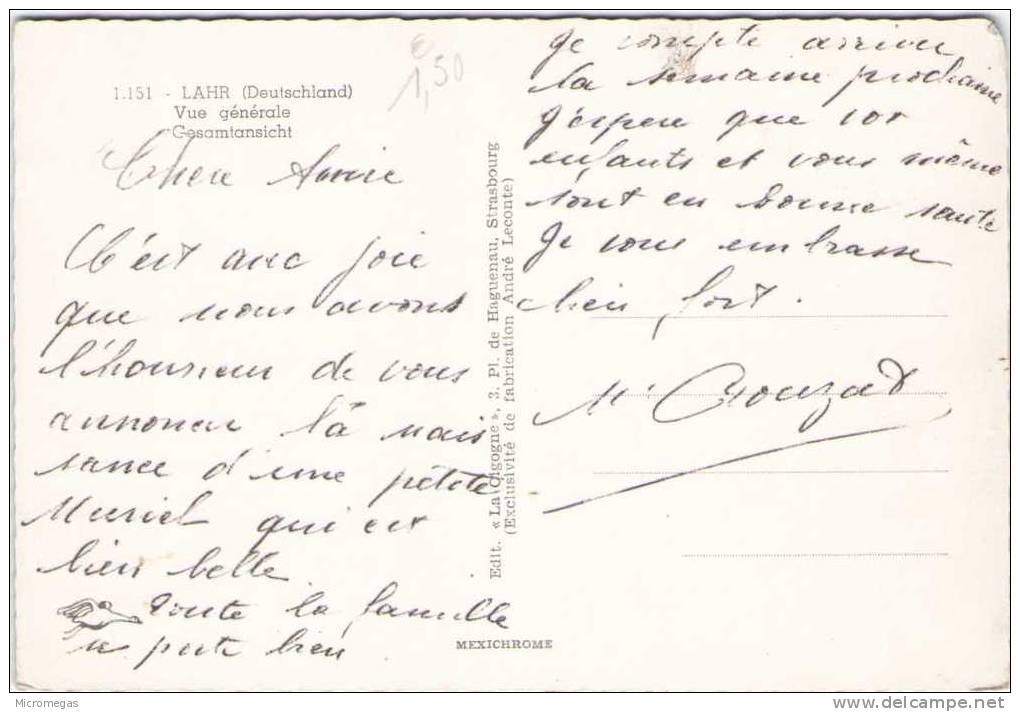 1,50
1.151 - LAHR (Deutschland)
Vue générale
Gesamtansicht
Chere Amie
C'est avec joie
que nous avons
l'honneur de vous
annoncer la nais
sance d'une petite
Muriel qui est
bien belle
Toute la famille
se porte bien
Edit. « La Cigogne », 3. Pl. de Haguenau, Strasbourg
(Exclusivité de fabrication André Leconte)
MEXICHROME
Je compte arriver
la semaine prochaine
J'éspere que vos
enfants et vous même
sont en bonne santé
Je vous embrasse
bien fort.
Mr Crouzat
Micromegas
www.delcampe.net